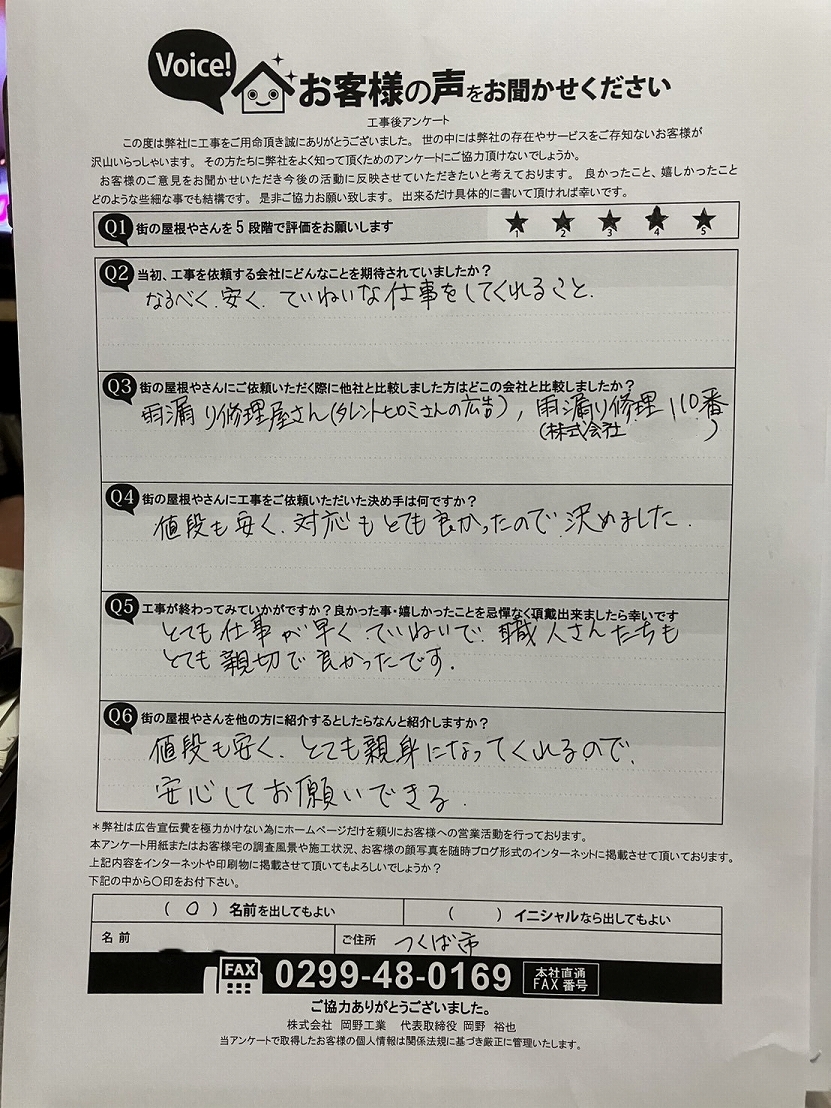 Voice!
お客様の声をお聞かせください
工事後アンケート
この度は弊社に工事をご用命頂き誠にありがとうございました。 世の中には弊社の存在やサービスをご存知ないお客様が
沢山いらっしゃいます。 その方たちに弊社をよく知って頂くためのアンケートにご協力頂けないでしょうか。
お客様のご意見をお聞かせいただき今後の活動に反映させていただきたいと考えております。 良かったこと、嬉しかったこと
どのような些細な事でも結構です。 是非ご協力お願い致します。 出来るだけ具体的に書いて頂ければ幸いです。
Q1 街の屋根やさんを5段階で評価をお願いします
1 2 3 4 5
Q2 当初、工事を依頼する会社にどんなことを期待されていましたか?
なるべく、安く、ていねいな仕事をしてくれること.
Q3 街の屋根やさんにご依頼いただく際に他社と比較しました方はどこの会社と比較しましたか?
雨漏り修理屋さん(タレントヒロミさんの広告), 雨漏り修理110番
(株式会社 )
Q4 街の屋根やさんに工事をご依頼いただいた決め手は何ですか?
値段も安く、対応もとても良かったので、決めました.
Q5 工事が終わってみていかがですか?良かった事・嬉しかったことを忌憚なく頂戴出来ましたら幸いです
とても仕事が早く、ていねいで、職人さんたちも
とても親切で良かったです.
Q6 街の屋根やさんを他の方に紹介するとしたらなんと紹介しますか?
値段も安く、とても親身になってくれるので、
安心してお願いできる.
*弊社は広告宣伝費を極力かけない為にホームページだけを頼りにお客様への営業活動を行っております。
本アンケート用紙またはお客様宅の調査風景や施工状況、お客様の顔写真を随時ブログ形式のインターネットに掲載させて頂いております。
上記内容をインターネットや印刷物に掲載させて頂いてもよろしいでしょうか?
下記の中から〇印をお付下さい。
( ○ ) 名前を出してもよい ( ) イニシャルなら出してもよい
名前 ご住所 つくば市
FAX 0299-48-0169 本社直通 FAX番号
ご協力ありがとうございました。
株式会社 岡野工業 代表取締役 岡野 裕也
当アンケートで取得したお客様の個人情報は関係法規に基づき厳正に管理いたします。